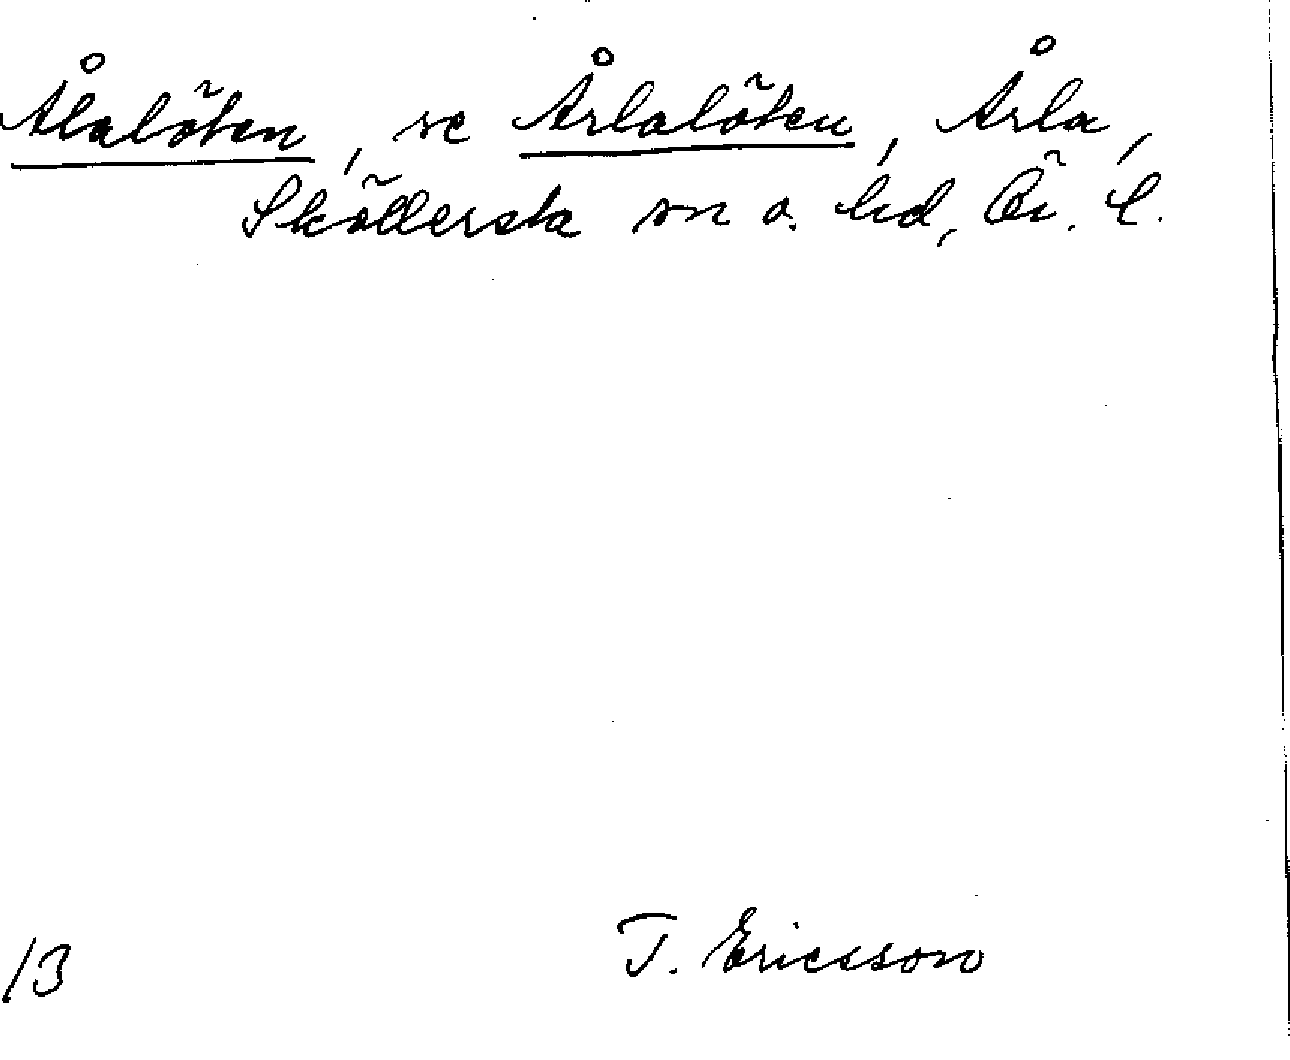 Ålalöten, se Årlalöten, Årla,
Sköllersta sn o. hd, Ör. l.
13
T. Ericsson